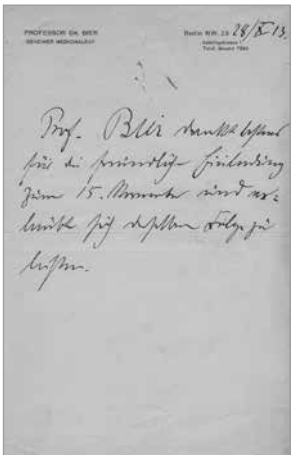 PROFESSOR DR. BIER
GEHEIMER MEDIZINALRAT
Berlin N.W. 23 28/X 13.
Prof. Bier dankt bestens
für die freundliche Einladung
zum 15. November und er=
laubt sich derselben Folge zu
leisten.